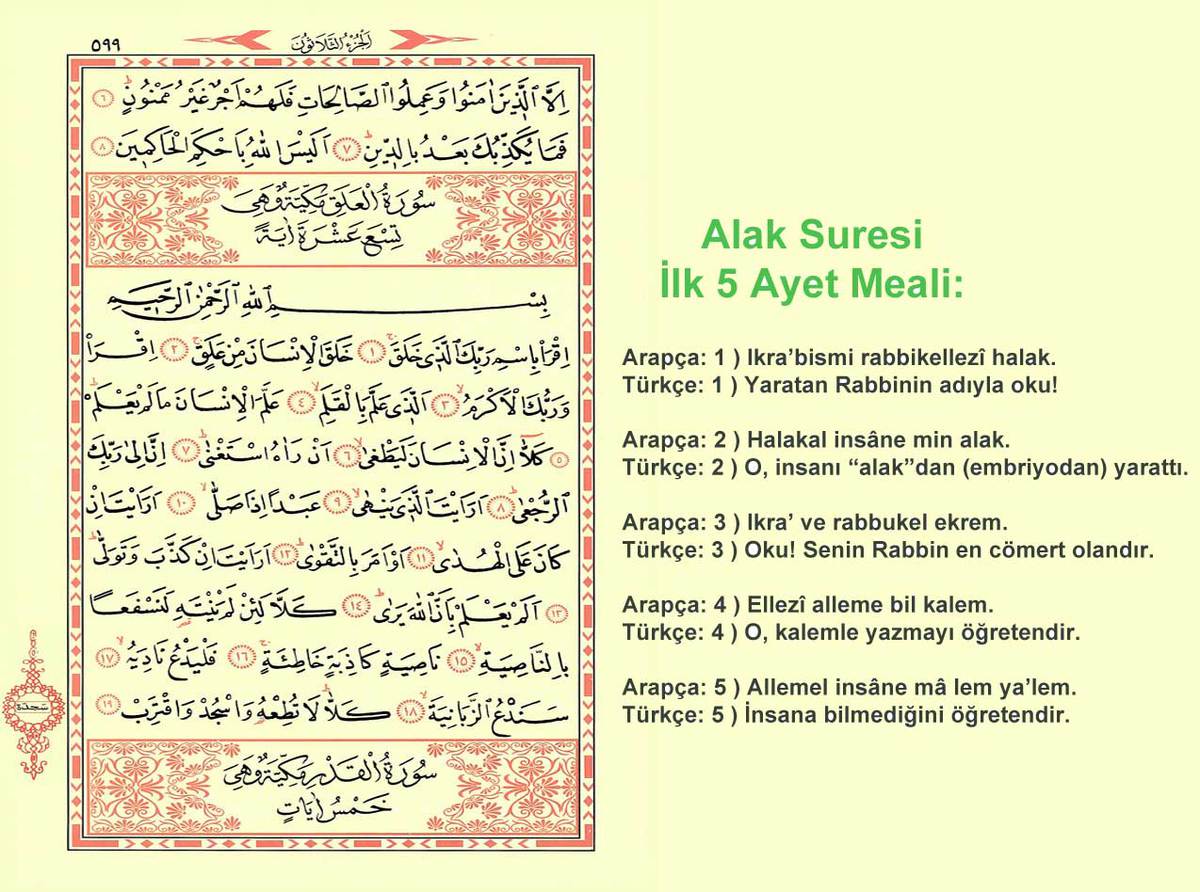 ٥٩٩
اَلْجُزْءُ الثَّلَاثُونَ
اِلَّا الَّذ۪ينَ اٰمَنُوا وَعَمِلُوا الصَّالِحَاتِ فَلَهُمْ اَجْرٌ غَيْرُ مَمْنُونٍۜ ٦
فَمَا يُكَذِّبُكَ بَعْدُ بِالدّ۪ينِۜ ٧ اَلَيْسَ اللّٰهُ بِاَحْكَمِ الْحَاكِم۪ينَ ٨
سُورَةُ الْعَلَقِ مَكِّيَّةٌ وَهِيَ
تِسْعَ عَشْرَةَ اٰيَةً
بِسْمِ اللّٰهِ الرَّحْمٰنِ الرَّح۪يمِ
اِقْرَأْ بِاسْمِ رَبِّكَ الَّذ۪ي خَلَقَۚ ١ خَلَقَ الْاِنْسَانَ مِنْ عَلَقٍۚ ٢ اِقْرَأْ
وَرَبُّكَ الْاَكْرَمُۙ ٣ اَلَّذ۪ي عَلَّمَ بِالْقَلَمِۙ ٤ عَلَّمَ الْاِنْسَانَ مَا لَمْ يَعْلَمْۜ
٥ كَلَّٓا اِنَّ الْاِنْسَانَ لَيَطْغٰىۙ ٦ اَنْ رَاٰهُ اسْتَغْنٰىۜ ٧ اِنَّ اِلٰى رَبِّكَ
الرُّجْعٰىۜ ٨ اَرَاَيْتَ الَّذ۪ي يَنْهٰىۙ ٩ عَبْدًا اِذَا صَلّٰىۜ ١٠ اَرَاَيْتَ اِنْ
كَانَ عَلَى الْهُدٰىۙ ١١ اَوْ اَمَرَ بِالتَّقْوٰىۜ ١٢ اَرَاَيْتَ اِنْ كَذَّبَ وَتَوَلّٰىۜ
١٣ اَلَمْ يَعْلَمْ بِاَنَّ اللّٰهَ يَرٰىۜ ١٤ كَلَّا لَئِنْ لَمْ يَنْتَهِ لَنَسْفَعًا
بِالنَّاصِيَةِۙ ١٥ نَاصِيَةٍ كَاذِبَةٍ خَاطِئَةٍۚ ١٦ فَلْيَدْعُ نَادِيَهُۙ ١٧
سَنَدْعُ الزَّبَانِيَةَۙ ١٨ كَلَّاۜ لَا تُطِعْهُ وَاسْجُدْ وَاقْتَرِبْ ١٩
سجده
سُورَةُ الْقَدْرِ مَكِّيَّةٌ وَهِيَ
خَمْسُ اٰيَاتٍ
Alak Suresi
İlk 5 Ayet Meali:
Arapça: 1 ) Ikra’bismi rabbikellezî halak.
Türkçe: 1 ) Yaratan Rabbinin adıyla oku!
Arapça: 2 ) Halakal insâne min alak.
Türkçe: 2 ) O, insanı “alak”dan (embriyodan) yarattı.
Arapça: 3 ) Ikra’ ve rabbukel ekrem.
Türkçe: 3 ) Oku! Senin Rabbin en cömert olandır.
Arapça: 4 ) Ellezî alleme bil kalem.
Türkçe: 4 ) O, kalemle yazmayı öğretendir.
Arapça: 5 ) Allemel insâne mâ lem ya’lem.
Türkçe: 5 ) İnsana bilmediğini öğretendir.